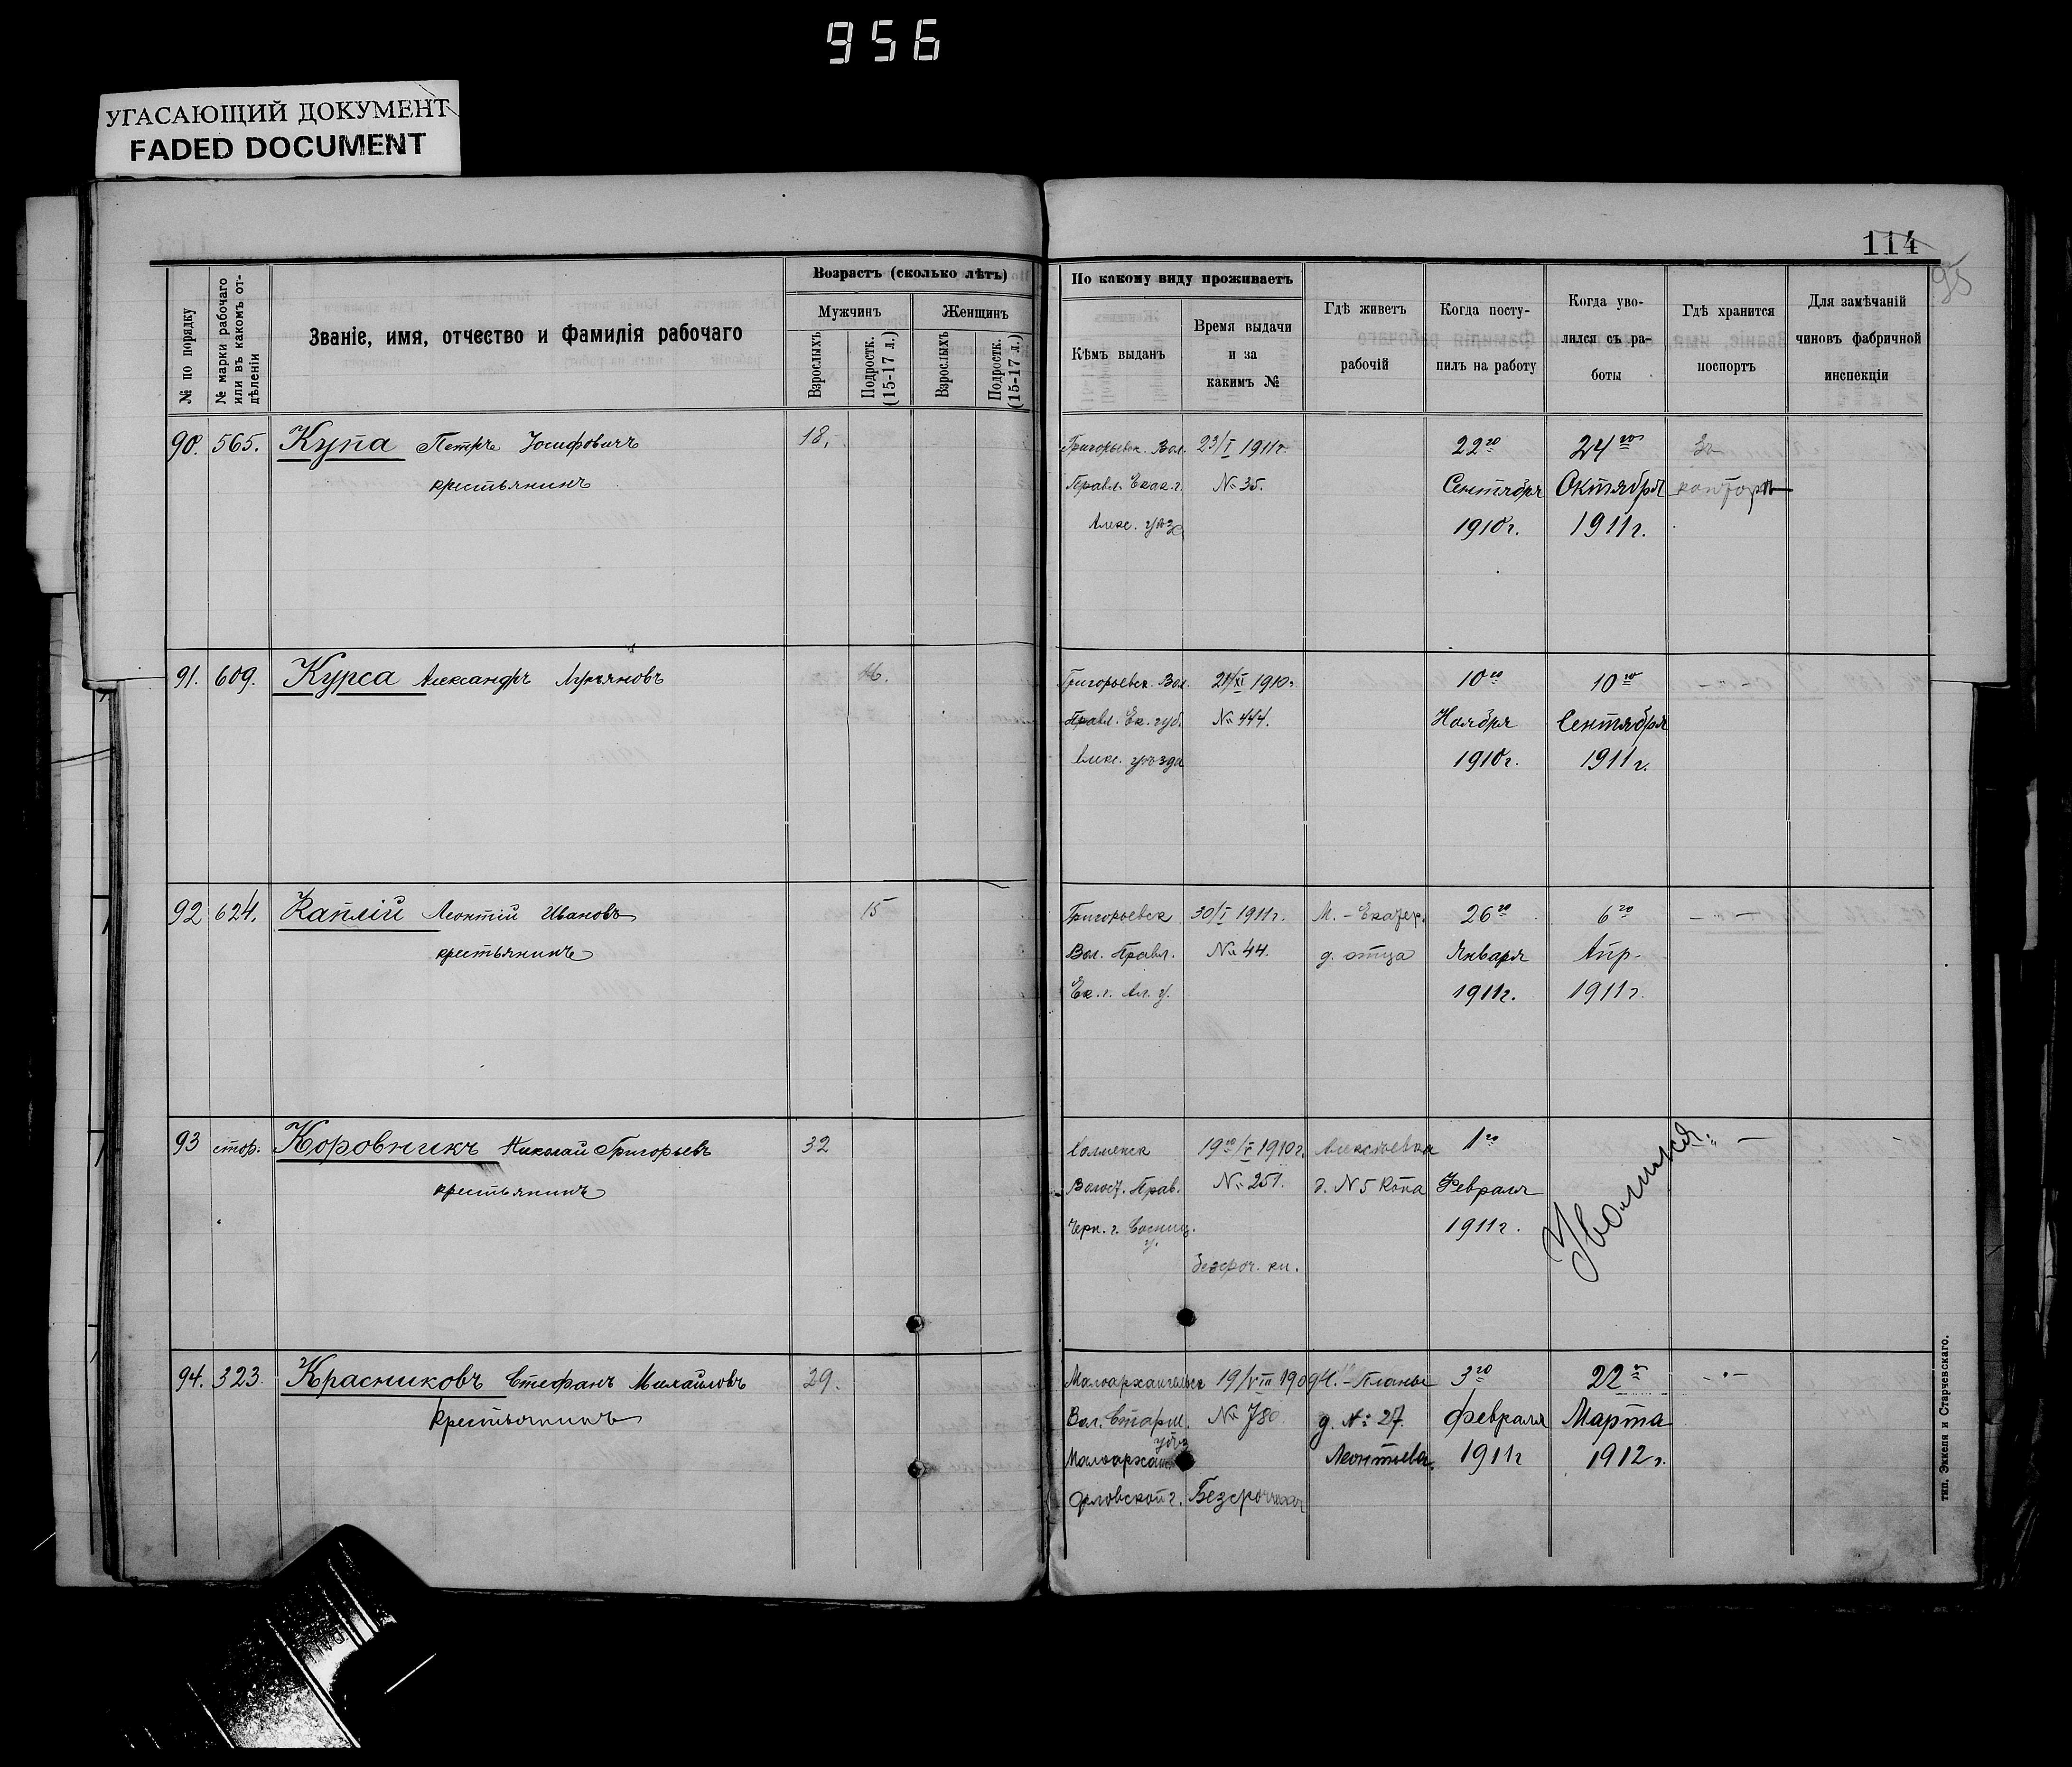 956
УГАСАЮЩИЙ ДОКУМЕНТ
FADED DOCUMENT
114
95
№ по порядку
№ марки рабочаго или въ какомъ от-дѣленіи
Званіе, имя, отчество и фамилія рабочаго
Возрастъ (сколько лѣтъ)
Мужчинъ
Женщинъ
Взрослыхъ
Подростк. (15-17 л.)
Взрослыхъ
Подростк. (15-17 л.)
По какому виду проживаетъ
Кѣмъ выданъ
Время выдачи
и за
какимъ №
Гдѣ живетъ
рабочій
Когда посту-
пилъ на работу
Когда уво-
лился съ ра-
боты
Гдѣ хранится
поспортъ
Для замѣчаній
чиновъ фабричной
инспекціи
90. 565. Купа Петръ Іосифовичъ 18. Григорьевск. Вол. 23/I 1911г. 22го 24го
крестьянинъ Правл. Екак. г. № 35. Сентября Октября конторѣ
Алекс. уѣз 1910г. 1911г.
91. 609. Курса Александръ Лукьяновъ 16. Григорьевск. Вол. 1910г 10го 10го
Правл. Ек. губ. № 444. Ноября Сентября
Алекс. уѣзда 1910г. 1911г.
92 624. Каплій Леонтій Ивановъ 15 Григорьевск 30/I 1911г. М.-Екатер. 26го 6го
крестьянинъ Вол. Правл. № 44. д. отца Января Апр.
Ек. г. Ал. у. 1911г. 1911г
93 стор. Коровникъ Николай Григорьевъ 32 Холменск 19го/V 1910г. Алексѣевка 1го
крестьянинъ Волост. Прав. № 251. д. № 5 Копа Февраля Уволился
Черн. г. Сосниц. у. 1911г.
Безсроч. кн.
94. 323. Красниковъ Стефанъ Михайловъ 29. Малоархангельск 19/VIII 1909 Ч.-Планы 3го 22го
Крестьянинъ Вол. Старш. № 780 д. №: 27. Февраля Марта
Малоархан уѣз Леонтьева. 1911г 1912г.
Орловской г. Безсрочная
тип. Эккеля и Старчевскаго.